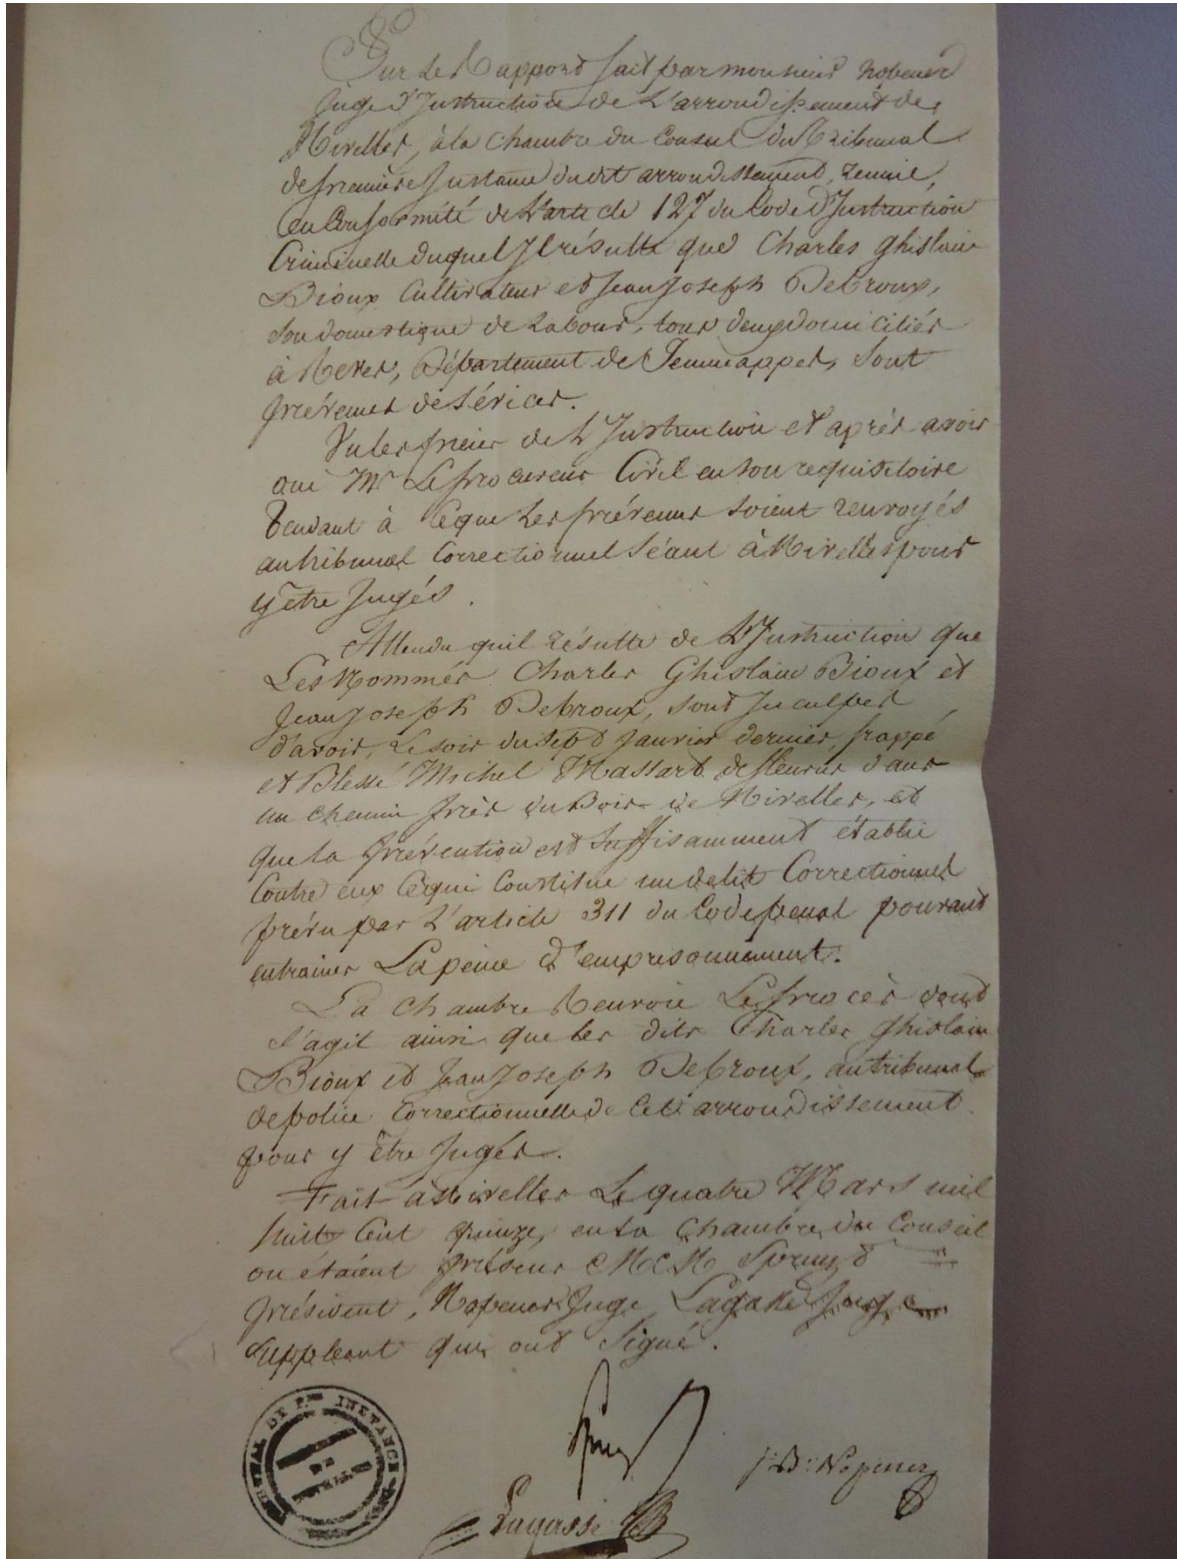 Sur Le Rapport fait par monsieur
Juge D'Instruction de L'arrondissement de
Nivelles, à la Chambre du Conseil du Tribunal
de première Instance dudit arrondissement, réunie,
en Conformité de L'article 127 du Code D'Instruction
Criminelle duquel Il résulte que Charles Ghislain
Bioux Cultivateur et Jean Joseph Debroux,
son domestique de Labour, tous deux domiciliés
à Reves, Département de Jemmappes, sont
prévenus de sévices.
Vu les pièces de L'Instruction et après avoir
oui Mr Le procureur Civil en son requisitoire
tendant à Ceque Les prévenus soient renvoyés
au tribunal Correctionnel séant à Nivelles pour
y être Jugés.
Attendu quil résulte de L'Instruction que
Les Nommés Charles Ghislain Bioux et
Jean Joseph Debroux, sont Inculpés
d'avoir, Le soir du sept Janvier dernier, frappé
et Blessé Michel Massart de fleurus dans
un chemin près du Bois de Nivelles, et
que la prévention est suffisamment établie
Contre eux Cequi Constitue un delit Correctionnel
prévu par L'article 311 du Code penal pouvant
entrainer La peine d'emprisonnement.
La Chambre Renvoie Le procès dont
s'agit ainsi que les dits Charles Ghislain
Bioux et Jean Joseph Debroux, au tribunal
de police Correctionnelle de Cet arrondissement
pour y être Jugés.
Fait à Nivelles Le quatre Mars mil
huit Cent quinze, en la Chambre du Conseil
ou étaient présens MM
président, Juge, Juge
suppleant qui ont signé.
TRIBUNAL DE Pre INSTANCE
Lagasse
J: B: